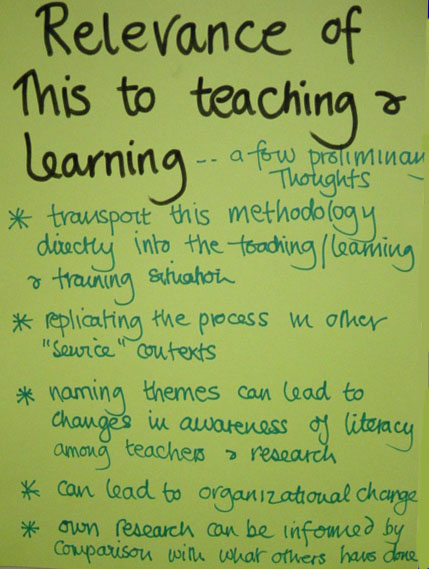 Relevance of
This to teaching &
learning -- a few preliminary
Thoughts -
* transport this methodology
directly into the teaching/learning
& training situation
* replicating the process in other
"service" contexts
* naming themes can lead to
changes in awareness of literacy
among teachers & research
* can lead to organizational change
* own research can be informed by
comparison with what others have done